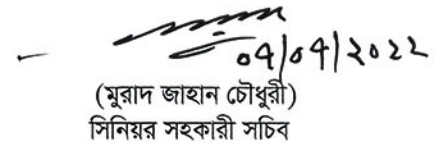 ০৭/০৭/২০২২
(মুরাদ জাহান চৌধুরী)
সিনিয়র সহকারী সচিব